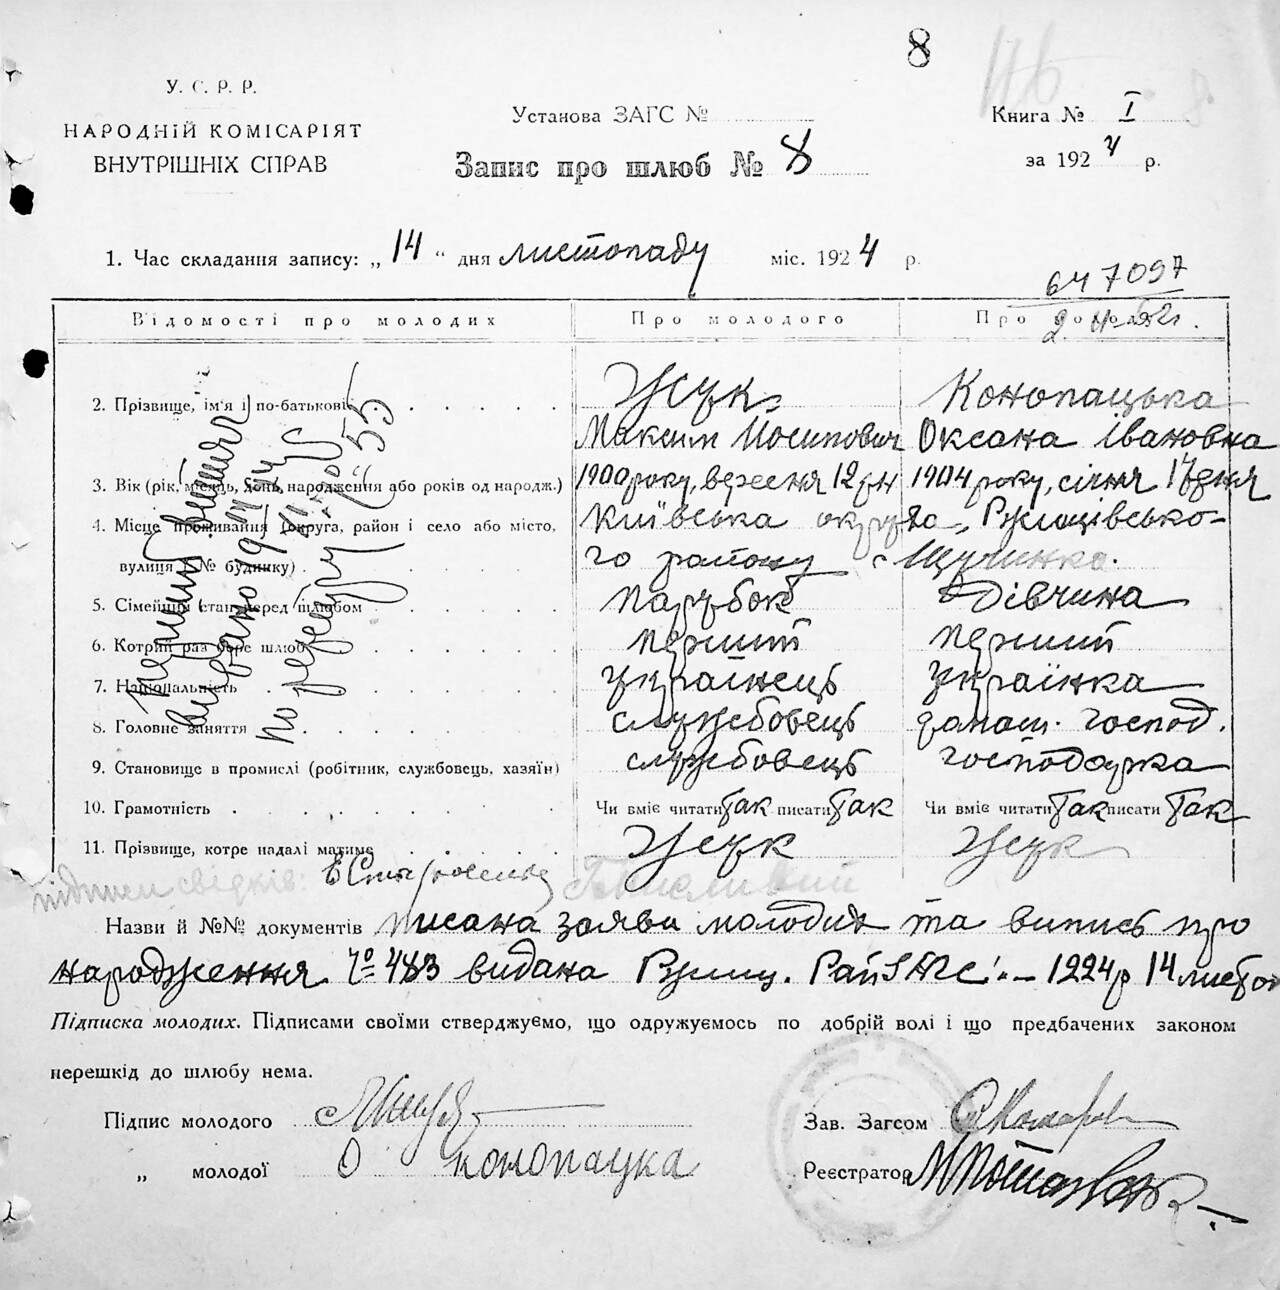 8
У. С. Р. Р.
НАРОДНІЙ КОМІСАРІЯТ
ВНУТРІШНІХ СПРАВ
Установа ЗАГС №
Запис про шлюб № 8
Книга № I
за 1924 р.
1. Час складання запису: „14“ дня листопаду міс. 1924 р.
647097
Відомості про молодих Про молодого Про
2. Прізвище, ім'я і по-батькові Жук Конопацька
Максим Иосипович Оксана Івановна
3. Вік (рік, місяць, день, народження або років од народж.) 1900 року, вересня 12 дн 1904 року, січня 17 дня
4. Місце проживання (округа, район і село або місто, Київська округа, Ржищівсько-
вулиця і № будинку) го району с Щучинка.
5. Сімейний стан перед шлюбом парубок дівчина
6. Котрий раз бере шлюб перший перший
7. Національність українець українка
8. Головне заняття службовець домаш. господ.
9. Становище в промислі (робітник, службовець, хазяїн) службовець господарка
10. Грамотність Чи вміє читати так писати так Чи вміє читати так писати так
11. Прізвище, котре надалі матиме Жук Жук
підписи свідків:
Назви й №№ документів писана заява молодих та випись про
народження № 483 видана Ржищ. РайЗАГС 1924 р 14 листоп
Підписка молодих. Підписами своїми стверджуємо, що одружуємось по добрій волі і що предбачених законом
перешкід до шлюбу нема.
Підпис молодого
„ молодої О Конопацка
Зав. Загсом
Реєстратор